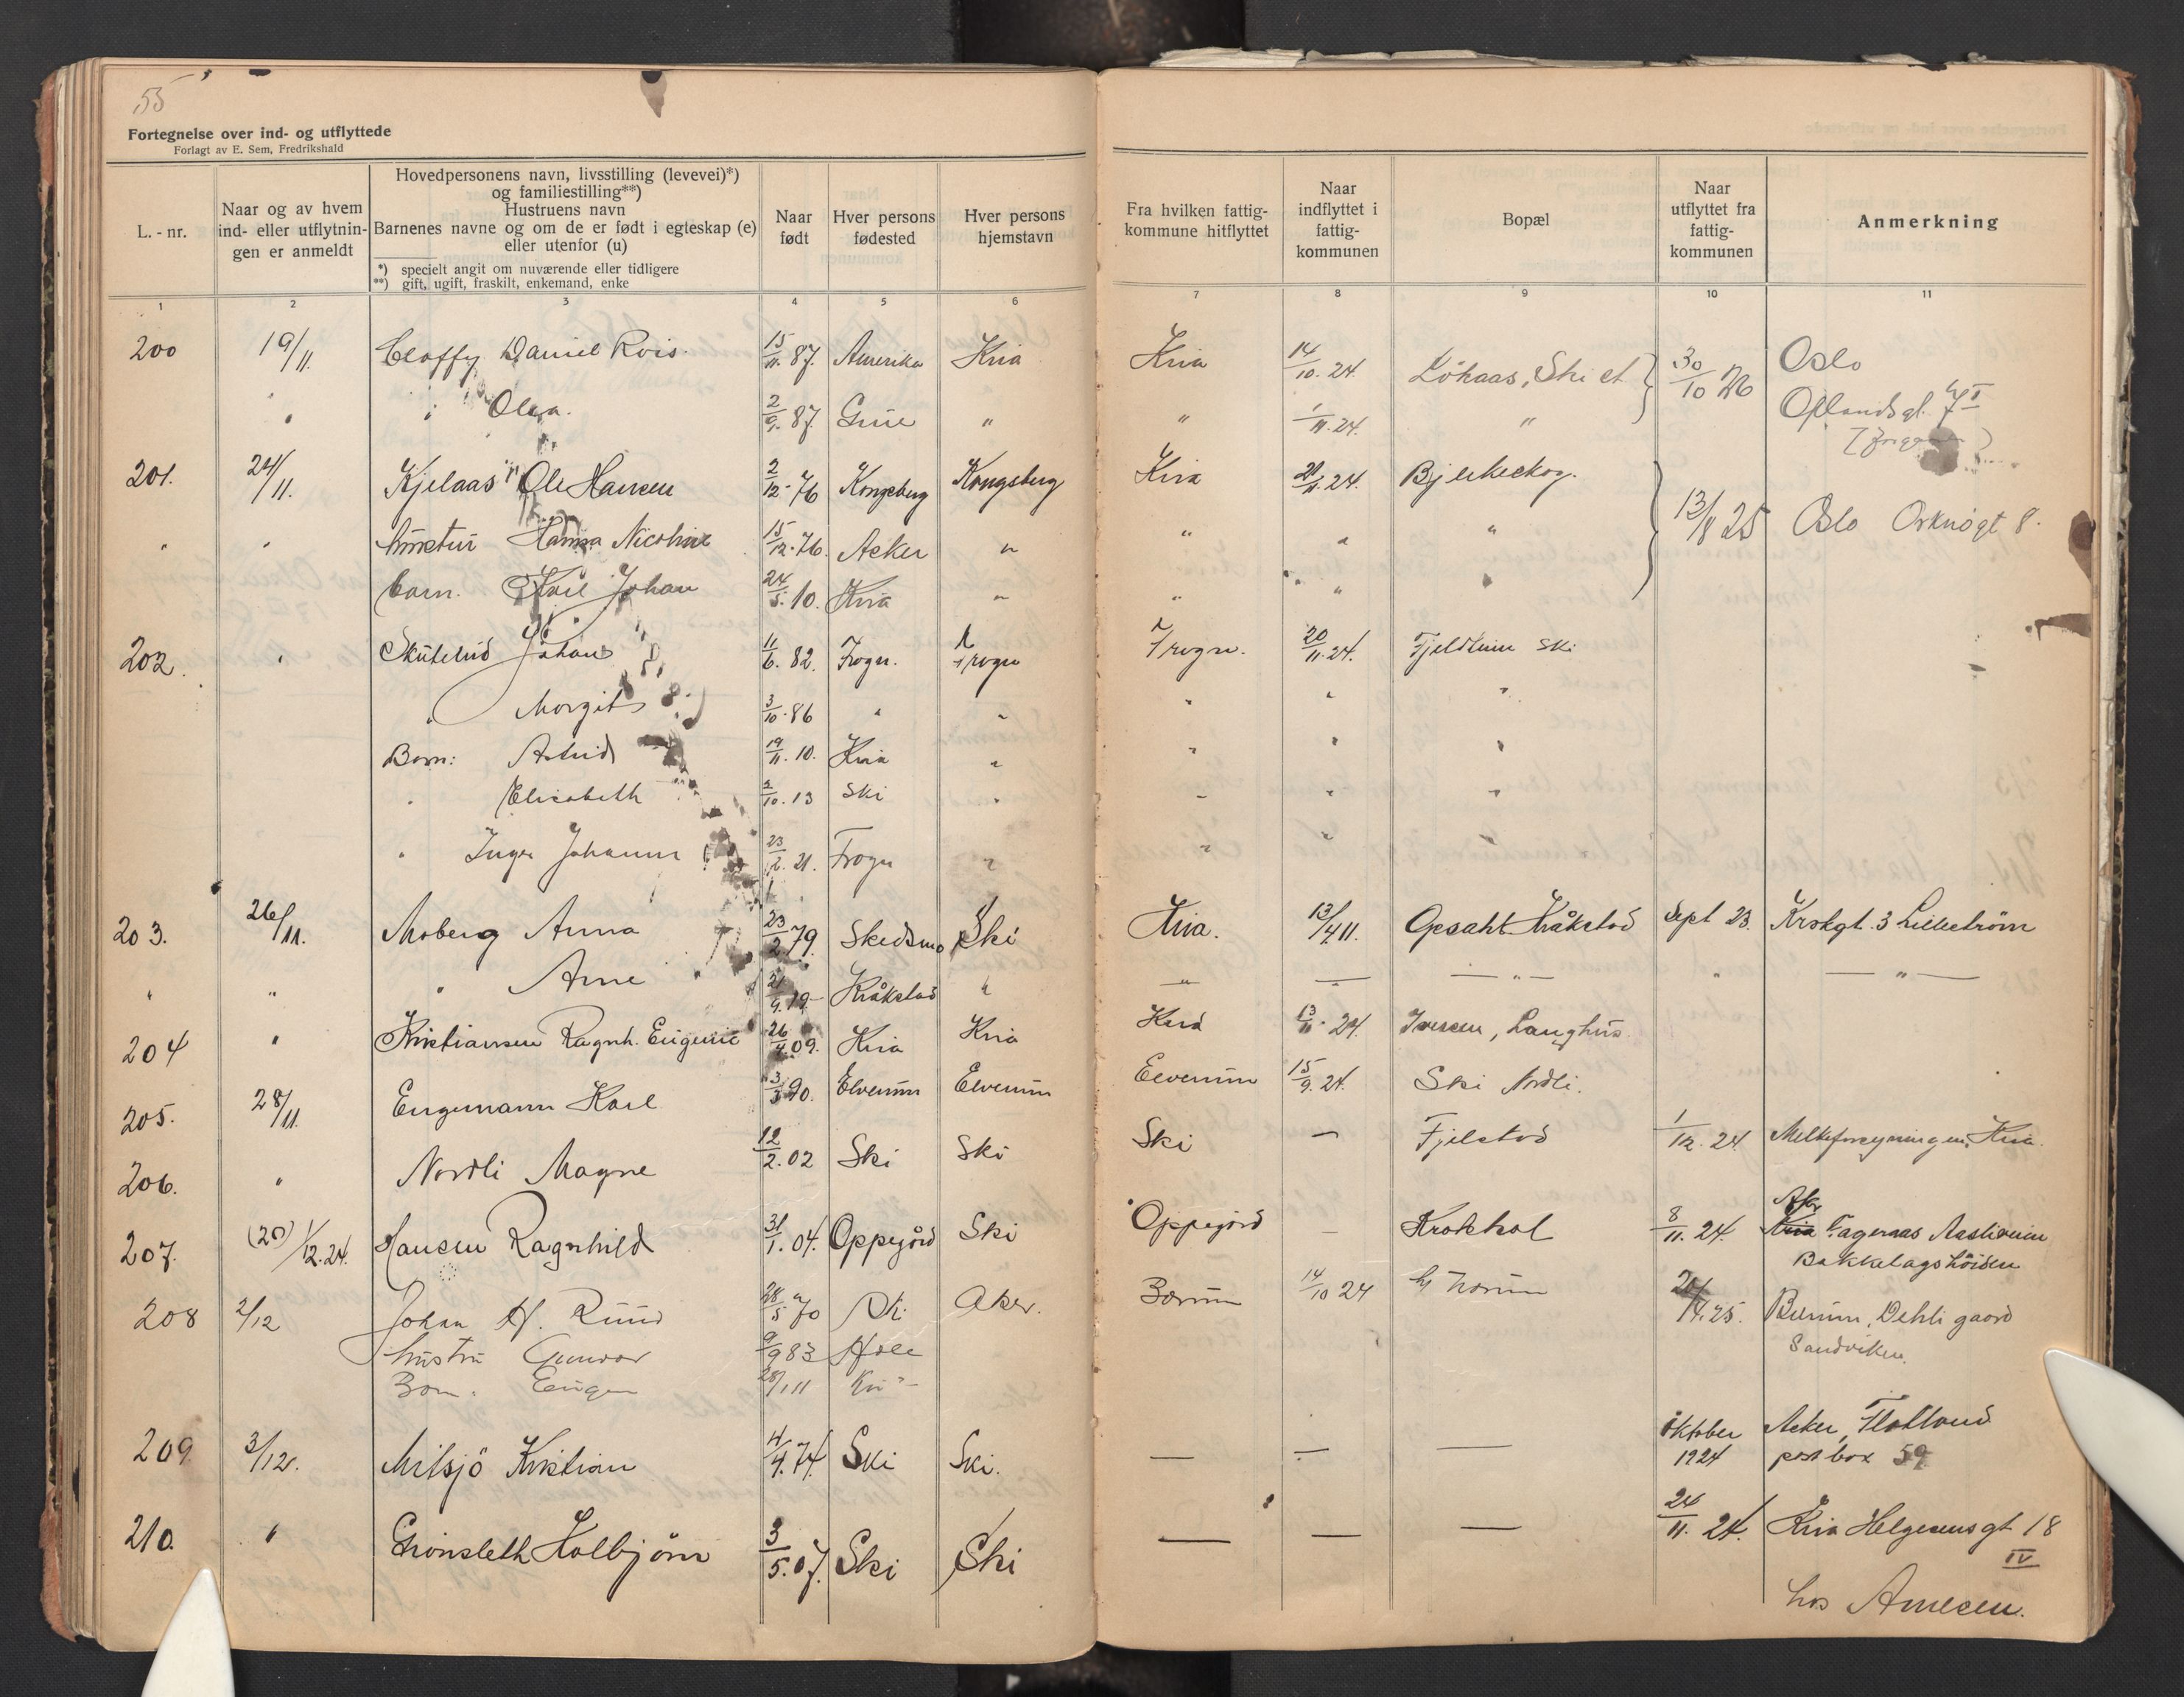 55
Fortegnelse over ind- og utflyttede
Forlagt av E. Sem, Fredrikshald
L. - nr.
Naar og av hvem ind- eller utflytnin- gen er anmeldt
Hovedpersonens navn, livsstilling (levevei)*)
og familiestilling**)
Hustruens navn
Barnenes navne og om de er født i egteskap (e)
eller utenfor (u)
*) specielt angit om nuværende eller tidligere
**) gift, ugift, fraskilt, enkemand, enke
Naar født
Hver persons fødested
Hver persons hjemstavn
Fra hvilken fattig- kommune hitflyttet
Naar indflyttet i fattig- kommunen
Bopæl
Naar utflyttet fra fattig- kommunen
Anmerkning
1 2 3 4 5 6 7 8 9 10 11
200 19/11. Claffy Daniel Rois. 15/11. 87. Amerika Kria Kria 14/10. 24. Löhaas, Ski st 30/10 26 Oslo
" " Olga. 2/9. 87. Grue " " 1/11. 24. "
201. 24/11. Kjelaas Ole Hansen 2/12. 76 Kongsberg Kongsberg Kria 24. Bjerkeskog. 13/8 25 Oslo Orknögt 8.
" " hustru Hanna Nicoline 15/12. 76. Aker " " " "
barn. Karl Johan 24/5. 10. Kria " " " "
202. " Skuterud Johan 11/6. 82. Frogn. Frogn Frogn. 20/11. 24. Fjeldheim Ski
" Margit 3/10. 86 " " " " "
Barn: Astrid 19/11. 10. Kria " " " "
" Elisabeth 2/10. 13 Ski " " " "
" Inger Johanne 23/2. 21. Frogn " " "
203. 26/11. Moberg Anna 23/2 79. Skedsmo Ski Kria. 13/4 11. Opsahl Kråkstad Sept 23. Krskgt. 3 Lilleström
" " " Arne 21/9 19 Kråkstad " — " — — — " — " — " —
204 " Kristiansen Ragnh. Eugenie 26/4. 09. Kria Kria Kria 13/11. 24. Iversen, Langhus.
205. 28/11. Engemann Karl 3/3 90. Elverum Elverum Elverum 15/9. 24. Ski Nordli.
206. " Nordli Magne 12/2. 02 Ski Ski Ski — Fjelstad 1/12. 24 Melkeforsyningen, Kria.
207. (20) 1/12. 24. Hansen Ragnhild 31/1. 04. Oppegård Ski Oppegård — Krokhol 8/11. 24. Aker Kria Fagernaas
Bekkelagshöiden
208 2/12 Johan H. Ruud 28/5 70 Ski Aker. Bærum 14/10 24 4. 25. Bærum, Dehli gaard
Sandviken.
hustru Gunvor 9/9 83 Hole
Barn. Eugen 28/1 11 Kria
209 3/12. Mitsjö Kristian 4/4. 74. Ski Ski. — — — Oktober 1924 Aker, Flatland
postbox 59
210. " Grönsleth Holbjörn 3/5. 07. Ski Ski — — — 24/11. 24. Kria Helgesensgt 18
IV
hos Arnesen.